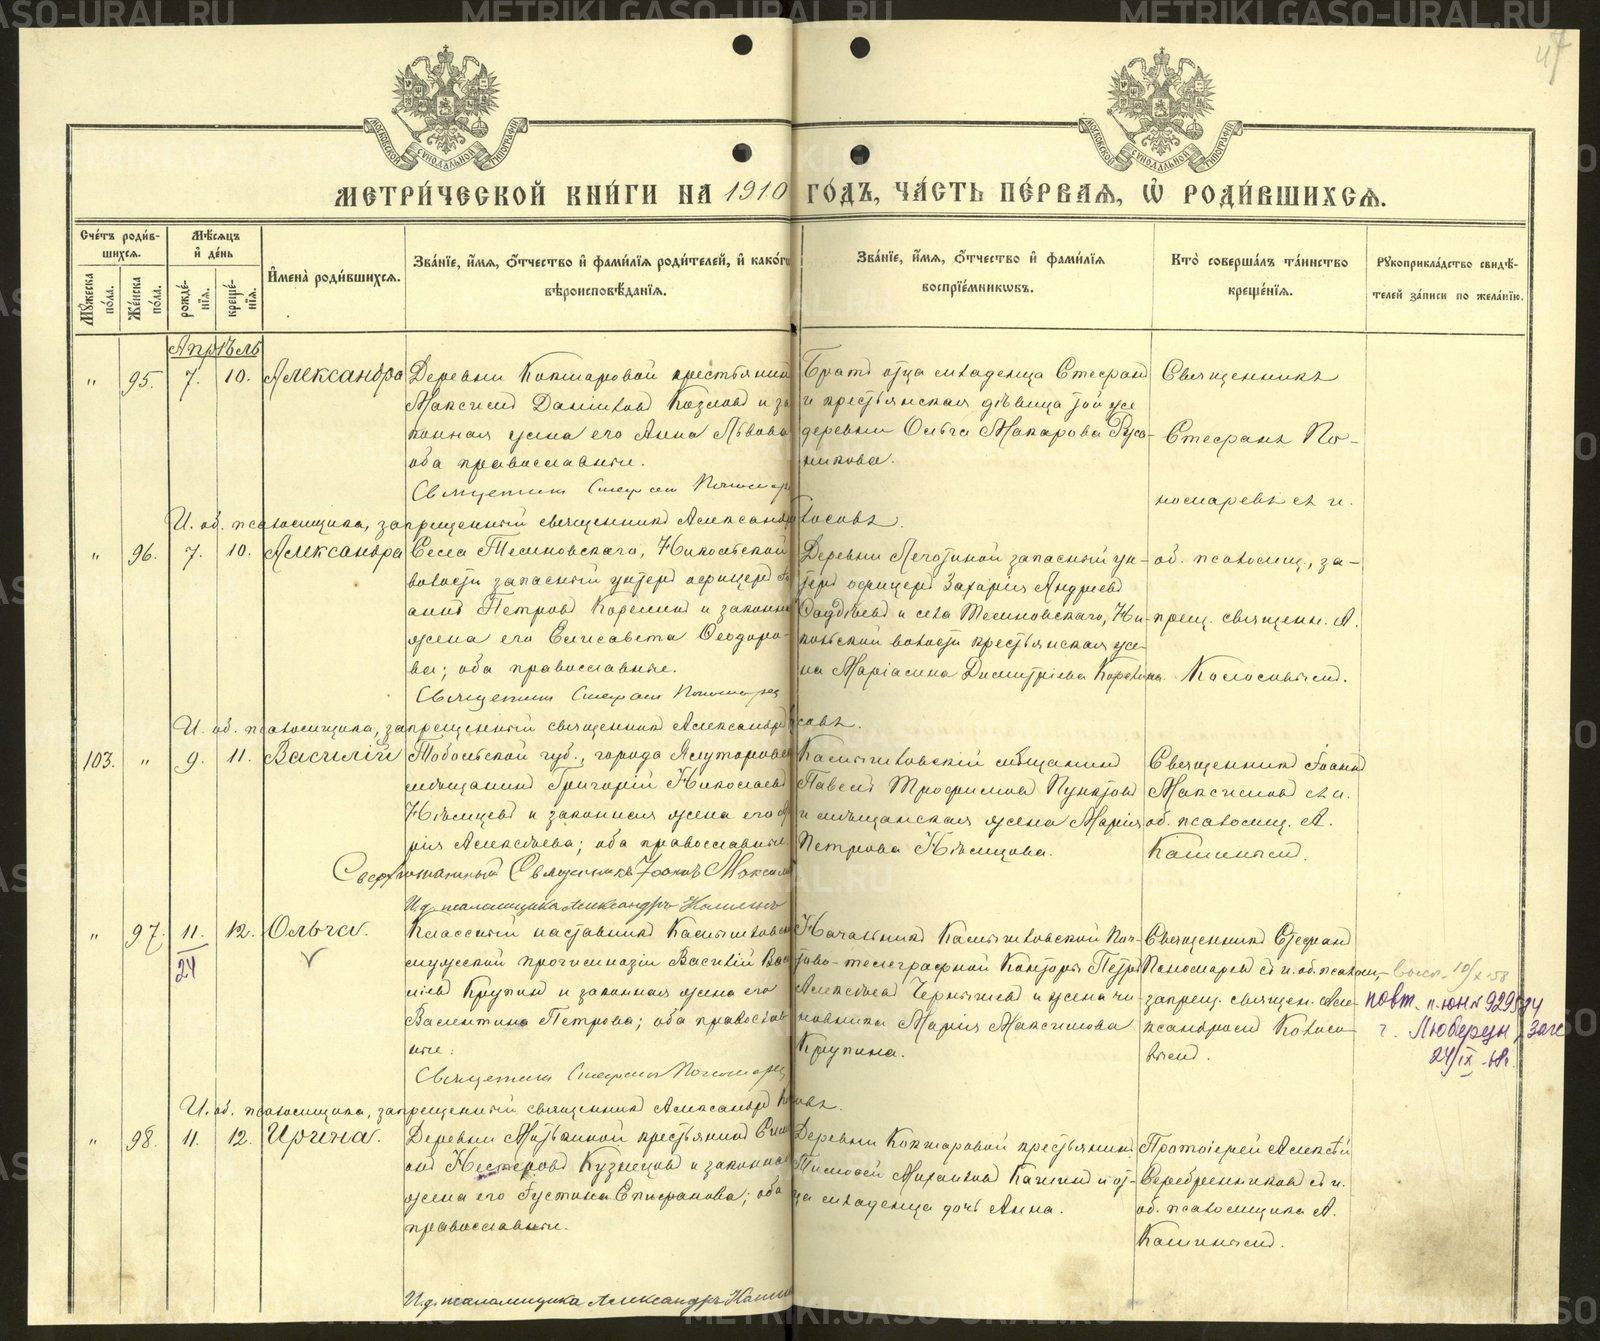 47
МЕТРИ́ЧЕСКОЙ КНИ́ГИ НА 1910 ГО́ДЪ, ЧА́СТЬ ПЕ́РВАЯ, Ѿ РОДИ́ВШИХСЯ.
Сче́тъ роди́в-
шихся.
Мꙋ́жеска по́ла.
Же́нска по́ла.
Мѣ́сяцъ и҆ де́нь
рожде́-нїя.
креще́-нїя.
И҆мена̀ роди́вшихся.
Зва́нїе, и҆́мя, ѻ҆́тчество и҆ фами́лїя роди́телей, и҆ како́гѡ
вѣроисповѣ́данїя.
Зва́нїе, и҆́мя, ѻ҆́тчество и҆ фами́лїя
воспрїе́мникѡвъ.
Кто̀ соверша́лъ та́инство
креще́нїя.
Рꙋкоприкла́дство свидѣ́-
телей за́писи по жела́нїю.
Апрѣль
" 95. 7. 10. Александра
Деревни Кокшаровой крестьянинъ
Максимъ Даніиловъ Козловъ и за
конная жена его Анна Львова
оба православные.
Священникъ Стефанъ Пономар
Братъ отца младенца Стефанъ
и крестьянская дѣвица той же
деревни Ольга Макарова Руса-
никова.
Священникъ
Стефанъ По-
номаревъ съ и.
И. об. псаломщика, запрещенный священникъ Александръ
" 96. 7. 10. Александра
Села Темновскаго, Никольской
волости запасный унтеръ офицеръ Іо
аннъ Петровъ Корелинъ и законная
жена его Елисавета Ѳеодоро-
ва; оба православные.
Священникъ Стефанъ Пономарев
Деревни запасный ун-
теръ офицеръ Захарія Андреевъ
и села Темновскаго, Ни-
кольской волости крестьянская же-
на Маріамна Димитріева Корелина
об. псаломщ., за-
прещ. священн. А.
Колосовымъ.
И. об. псаломщика, запрещенный священникъ Александръ
103. " 9. 11. Василій
Тобольской губ., города Ялуторовска
мѣщанинъ Григорій Николаевъ
Нѣмцевъ и законная жена его Ма
рія Алексѣева; оба православные.
Священникъ Іоаннъ Максим
И. д. псаломщика Александръ Кашинъ
Камышловскій мѣщанинъ
Павелъ Трофимовъ
и мѣщанская жена Марія
Петрова Нѣмцова.
Священникъ Іоаннъ
Максимовъ съ и.
об. псаломщ. А.
Кашинымъ.
" 97. 11. 12. Ольга.
24
Классный наставникъ Камышловской
мужской прогимназіи Василій Васи
ліевъ Крупинъ и законная жена его
Валентина Петрова; оба православ
ные.
Священникъ Стефанъ Пономарев
Начальникъ Камышловской Поч-
тово-телеграфной Конторы Петръ
Алексѣевъ Чернышевъ и жена чи-
новника Марія Максимова
Крупина.
Священникъ Стефанъ
Пономаревъ съ и. об. псаломщ.
запрещ. священ. Але-
ксандромъ Колосо-
вымъ.
повт.
г. Люберцы, загс
24/IX
И. об. псаломщика, запрещенный священникъ Александръ
" 98. 11. 12. Ирина.
Деревни крестьянинъ Симе
онъ Несторовъ Кузнецовъ и законная
жена его Іустина Епифанова; оба
православные.
Деревни Кокшаровой крестьянинъ
Тимоѳей Михаиловъ Качинъ и от-
ца младенца дочь Анна.
Протоіерей Алексѣй
Серебренниковъ съ и.
об. псаломщика А.
Кашинымъ.
И. д. псаломщика Александръ Кашин